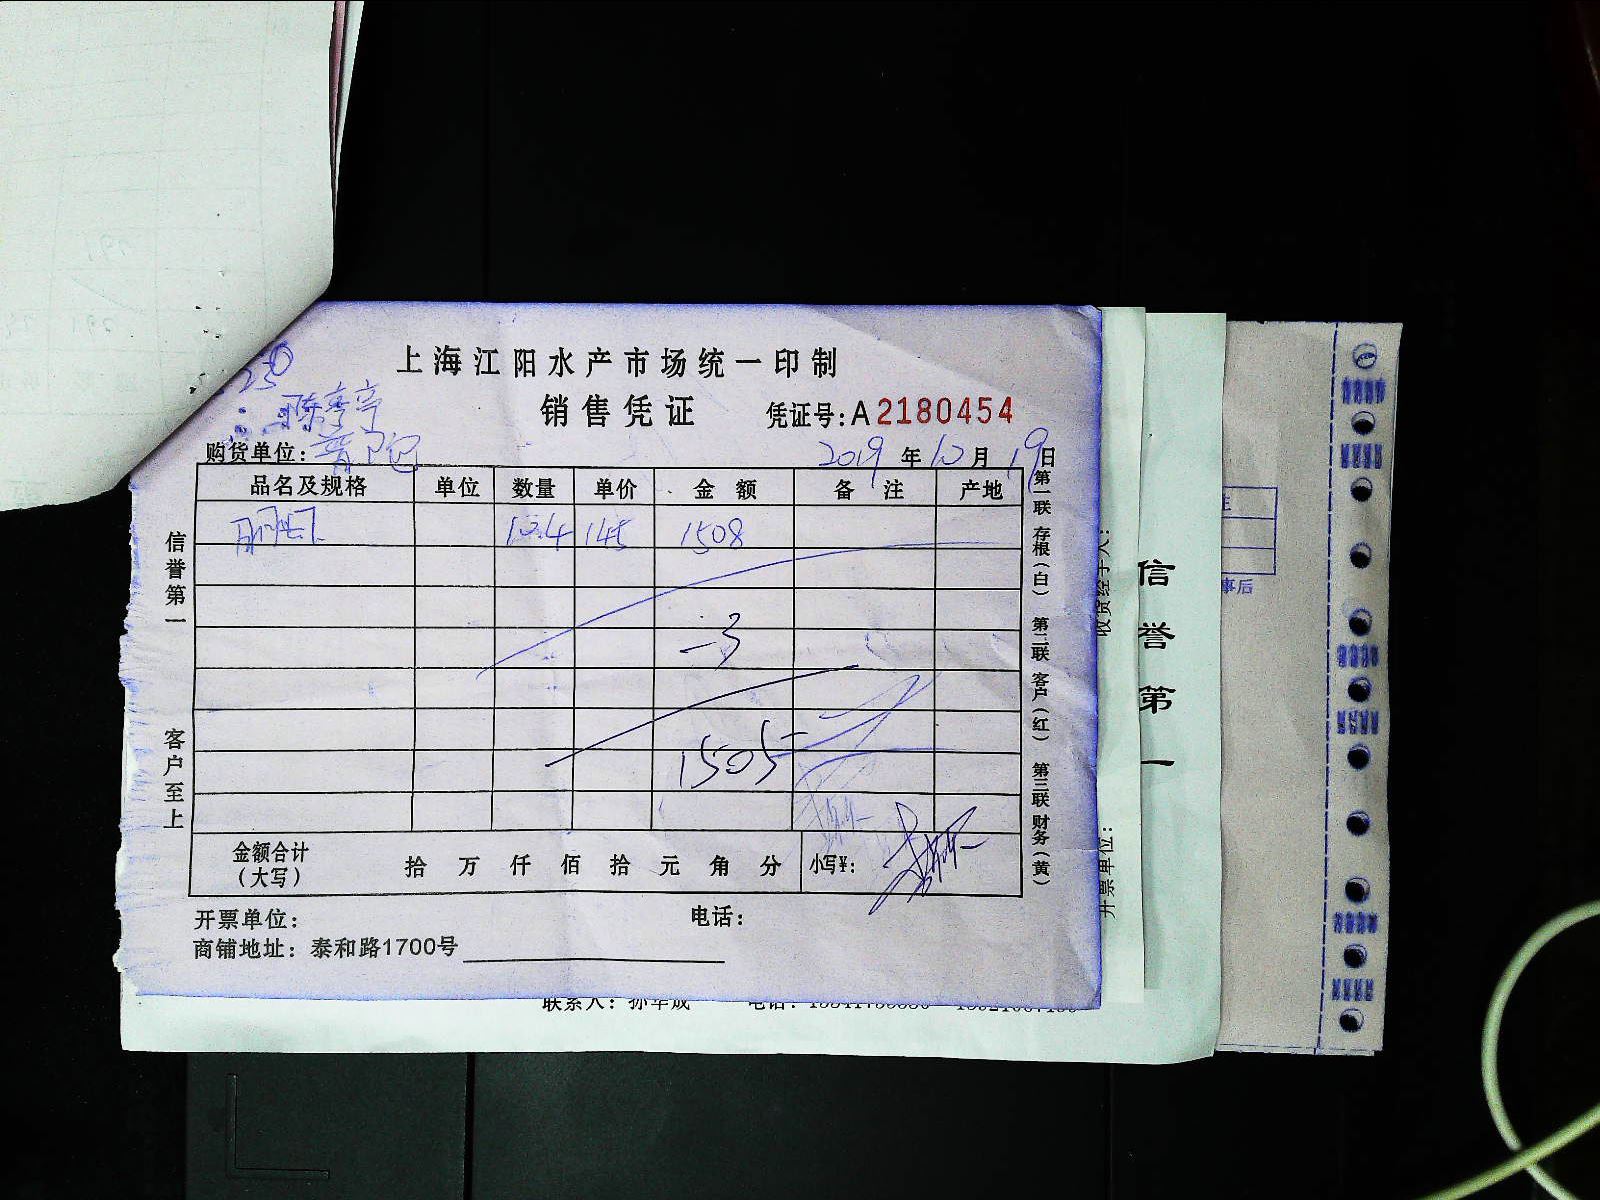 230
上海江阳水产市场统一印制
陈亭亭
销售凭证 凭证号:A2180454
购货单位: 普陀 2019年10月19日
品名及规格 单位 数量 单价 金额 备注 产地
10.4 145 1508
-3
1505-
金额合计(大写) 拾 万 仟 佰 拾 元 角 分 小写¥:
开票单位: 电话:
商铺地址: 泰和路1700号
信誉第一
客户至上
第一联 存根(白) 第二联 客户(红) 第三联 财务(黄)
信誉第一
开票单位:
事后